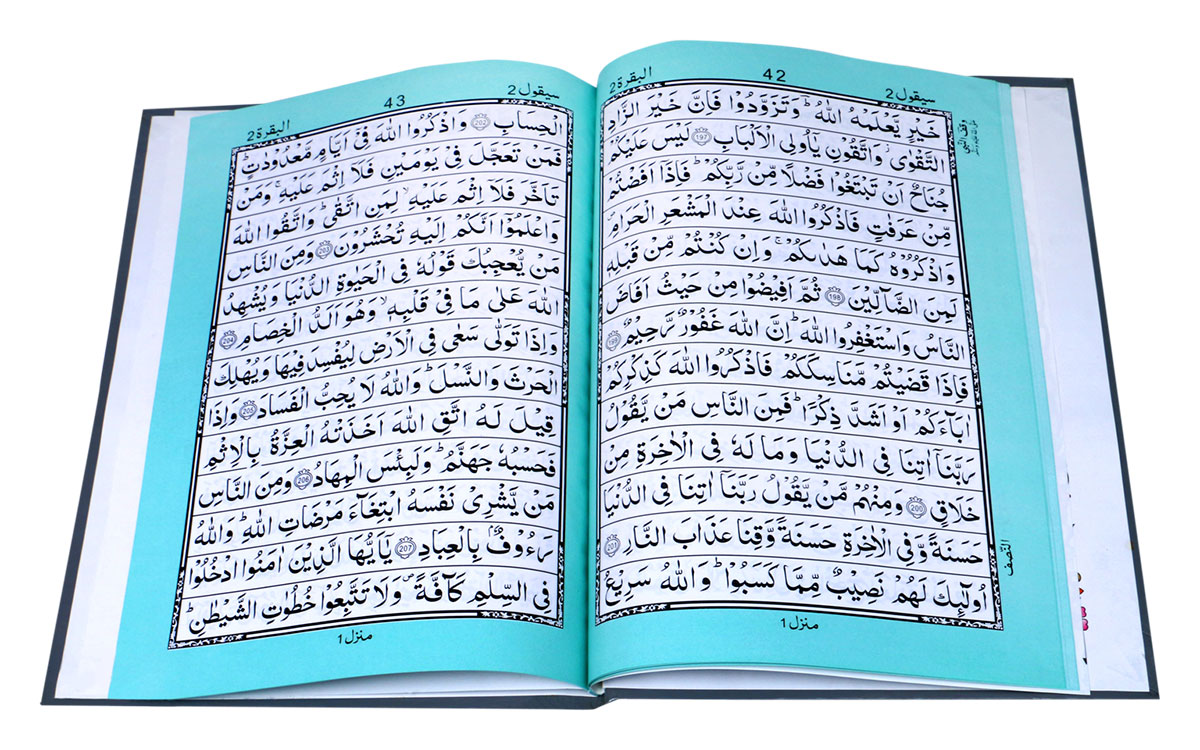 البقرة ٢
42
سيقول 2
خَيْرٍ يَّعْلَمْهُ اللّٰهُ ؕ وَتَزَوَّدُوْا فَاِنَّ خَيْرَ الزَّادِ
التَّقْوٰى ۫ وَاتَّقُوْنِ يٰۤاُولِى الْاَلْبَابِ 197 لَيْسَ عَلَيْكُمْ
جُنَاحٌ اَنْ تَبْتَغُوْا فَضْلًا مِّنْ رَّبِّكُمْ ؕ فَاِذَاۤ اَفَضْتُمْ
مِّنْ عَرَفٰتٍ فَاذْكُرُوا اللّٰهَ عِنْدَ الْمَشْعَرِ الْحَرَامِ ۪
وَاذْكُرُوْهُ كَمَا هَدٰىكُمْ ۚ وَاِنْ كُنْتُمْ مِّنْ قَبْلِهٖ
لَمِنَ الضَّآلِّيْنَ 198 ثُمَّ اَفِيْضُوْا مِنْ حَيْثُ اَفَاضَ
النَّاسُ وَاسْتَغْفِرُوا اللّٰهَ ؕ اِنَّ اللّٰهَ غَفُوْرٌ رَّحِيْمٌ 199
فَاِذَا قَضَيْتُمْ مَّنَاسِكَكُمْ فَاذْكُرُوا اللّٰهَ كَذِكْرِكُمْ
اٰبَآءَكُمْ اَوْ اَشَدَّ ذِكْرًا ؕ فَمِنَ النَّاسِ مَنْ يَّقُوْلُ
رَبَّنَاۤ اٰتِنَا فِى الدُّنْيَا وَمَا لَهٗ فِى الْاٰخِرَةِ مِنْ
خَلَاقٍ 200 وَمِنْهُمْ مَّنْ يَّقُوْلُ رَبَّنَاۤ اٰتِنَا فِى الدُّنْيَا
حَسَنَةً وَّفِى الْاٰخِرَةِ حَسَنَةً وَّقِنَا عَذَابَ النَّارِ 201
اُولٰٓئِكَ لَهُمْ نَصِيْبٌ مِّمَّا كَسَبُوْا ؕ وَاللّٰهُ سَرِيْعُ
وقف النبى
النصف
منزل ١
سيقول 2
43
البقرة ٢
الْحِسَابِ 202 وَاذْكُرُوا اللّٰهَ فِىْۤ اَيَّامٍ مَّعْدُوْدٰتٍ ؕ
فَمَنْ تَعَجَّلَ فِىْ يَوْمَيْنِ فَلَاۤ اِثْمَ عَلَيْهِ ۚ وَمَنْ
تَاَخَّرَ فَلَاۤ اِثْمَ عَلَيْهِ ۙ لِمَنِ اتَّقٰى ؕ وَاتَّقُوا اللّٰهَ
وَاعْلَمُوْۤا اَنَّكُمْ اِلَيْهِ تُحْشَرُوْنَ 203 وَمِنَ النَّاسِ
مَنْ يُّعْجِبُكَ قَوْلُهٗ فِى الْحَيٰوةِ الدُّنْيَا وَيُشْهِدُ
اللّٰهَ عَلٰى مَا فِىْ قَلْبِهٖ ۙ وَهُوَ اَلَدُّ الْخِصَامِ 204
وَاِذَا تَوَلّٰى سَعٰى فِى الْاَرْضِ لِيُفْسِدَ فِيْهَا وَيُهْلِكَ
الْحَرْثَ وَالنَّسْلَ ؕ وَاللّٰهُ لَا يُحِبُّ الْفَسَادَ 205 وَاِذَا
قِيْلَ لَهُ اتَّقِ اللّٰهَ اَخَذَتْهُ الْعِزَّةُ بِالْاِثْمِ
فَحَسْبُهٗ جَهَنَّمُ ؕ وَلَبِئْسَ الْمِهَادُ 206 وَمِنَ النَّاسِ
مَنْ يَّشْرِىْ نَفْسَهُ ابْتِغَآءَ مَرْضَاتِ اللّٰهِ ؕ وَاللّٰهُ
رَءُوْفٌۢ بِالْعِبَادِ 207 يٰۤاَيُّهَا الَّذِيْنَ اٰمَنُوا ادْخُلُوْا
فِى السِّلْمِ كَآفَّةً ۪ وَلَا تَتَّبِعُوْا خُطُوٰتِ الشَّيْطٰنِ ؕ
منزل ١